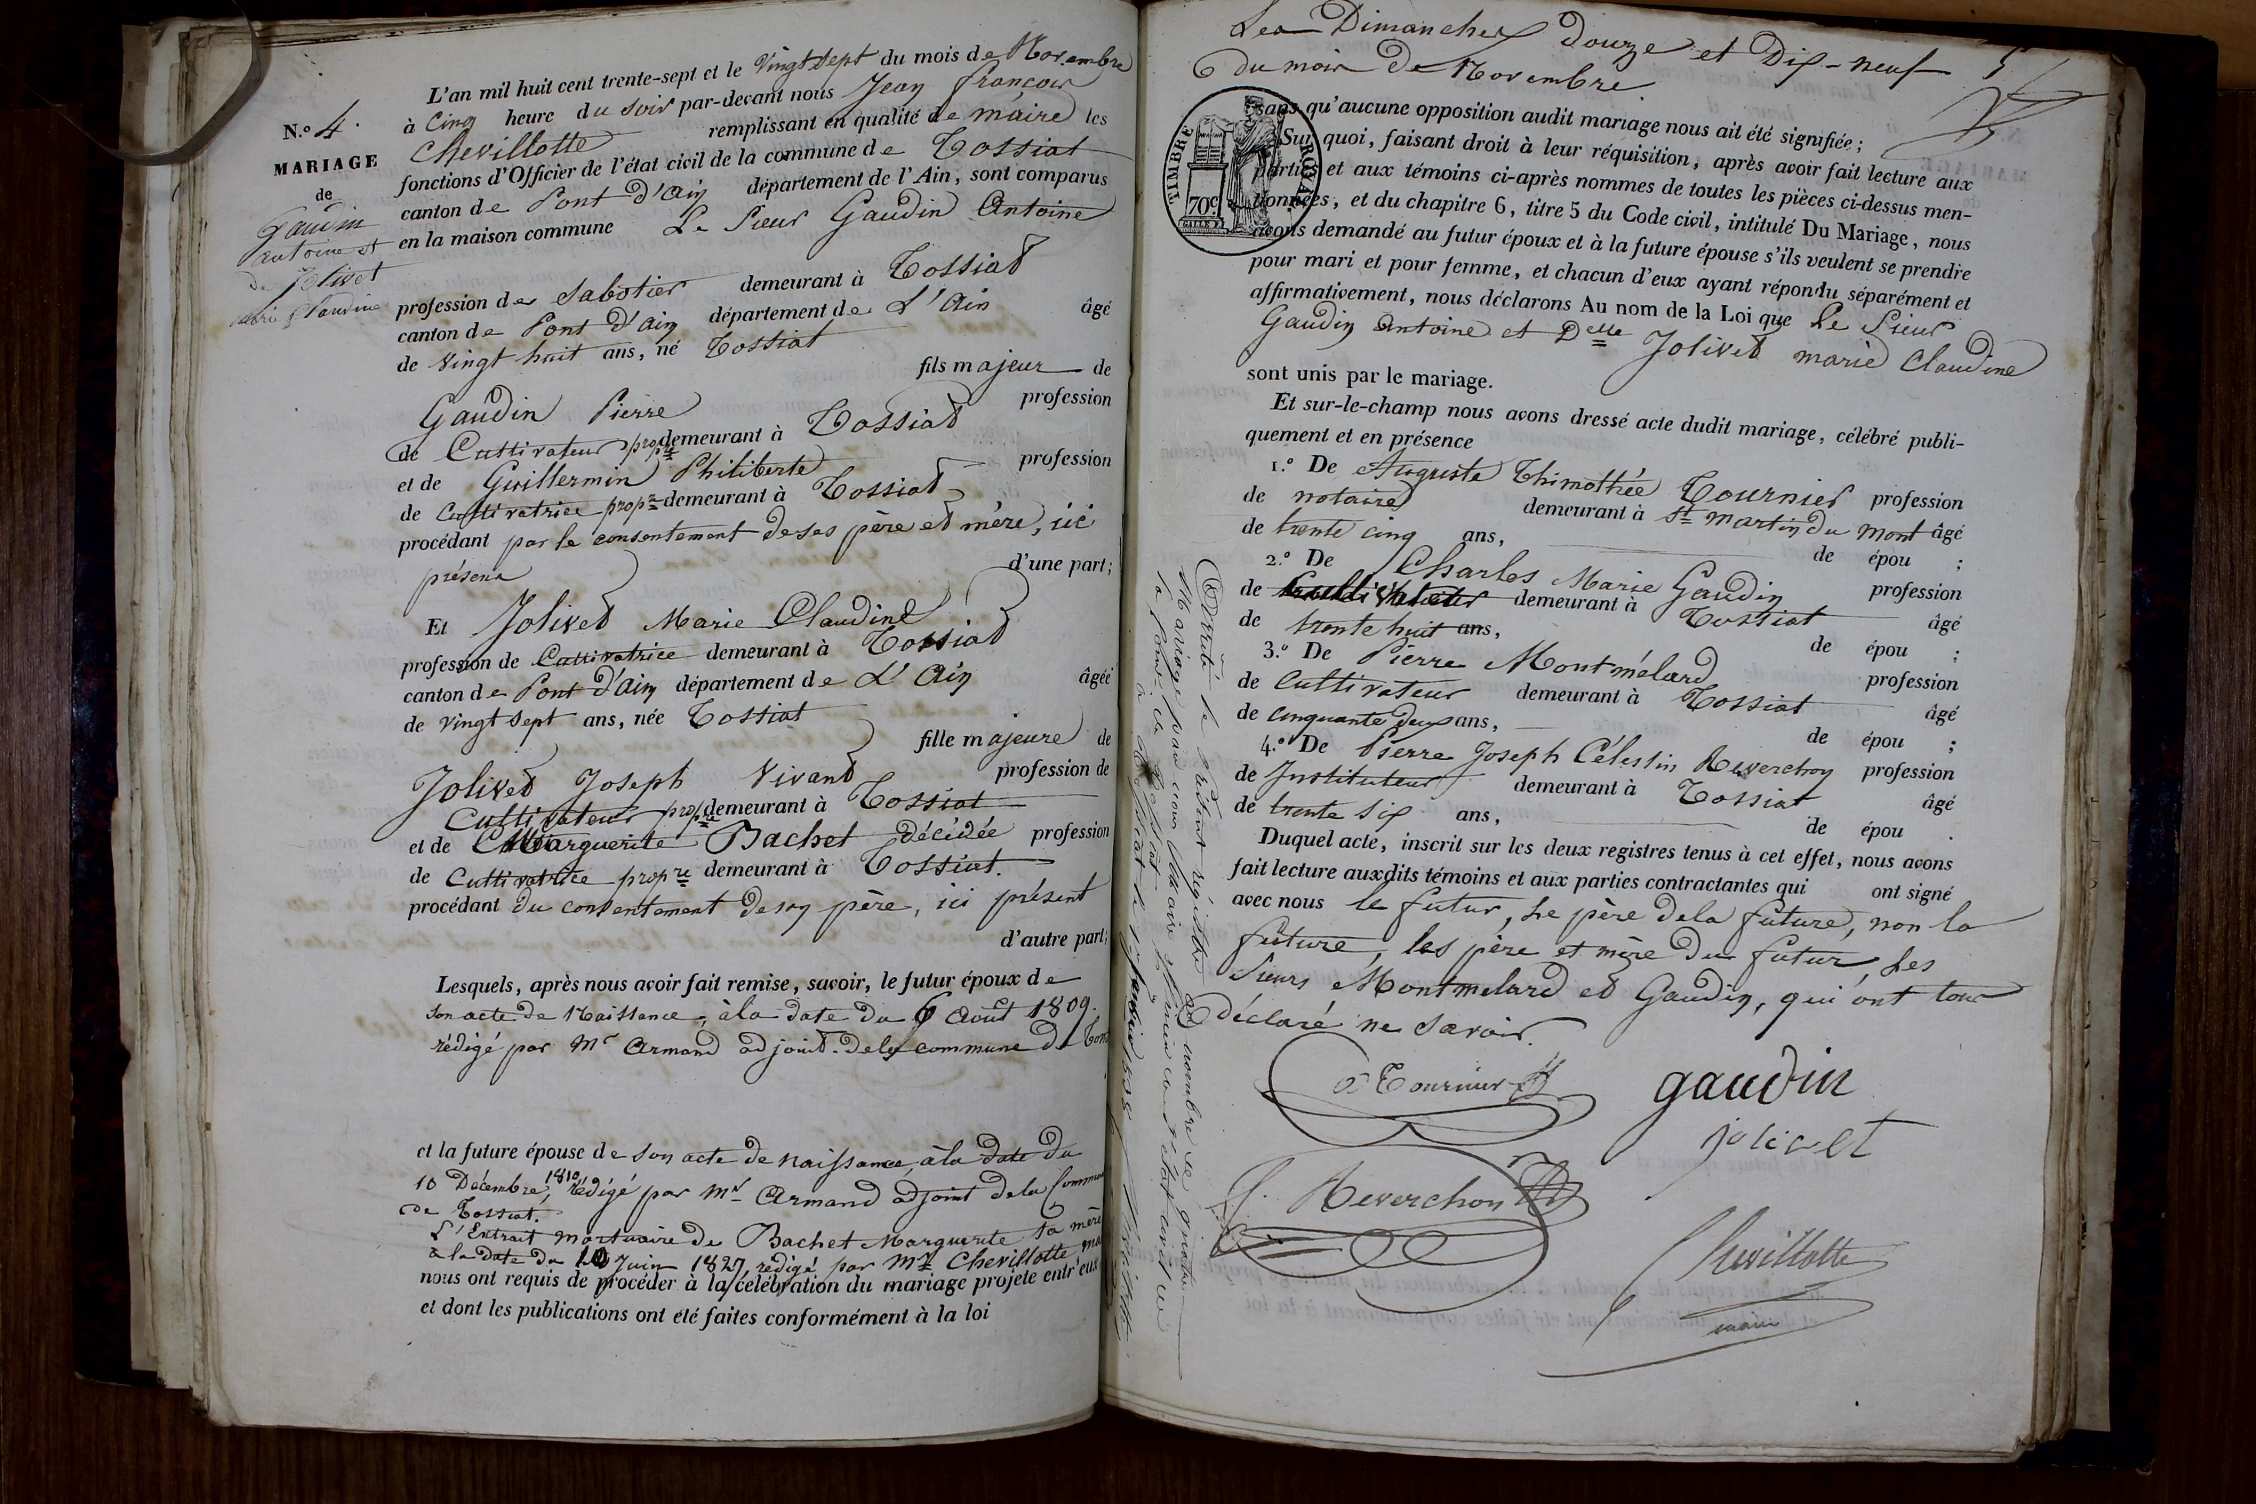 L'an mil huit cent trente-sept et le vingt sept du mois de Novembre
à Cinq heure du soir par-devant nous Jean françois
Chevillotte remplissant en qualité de maire les
fonctions d'Officier de l'état civil de la commune de Tossiat
canton de Pont d'ain département de l'Ain, sont comparus
en la maison commune Le Sieur Gaudin Antoine
N.o 4.
MARIAGE
de
Gaudin
antoine et
de Jolivet
marie Claudine
profession de Sabotier demeurant à Tossiat
canton de Pont d'ain département de L'Ain âgé
de vingt huit ans, né Tossiat
fils majeur de
Gaudin Pierre profession
de Cultivateur propre demeurant à Tossiat
et de Guillermin Philiberte profession
de Cultivatrice propre demeurant à Tossiat
procédant par le consentement de ses père et mère, ici
présens d'une part;
Et Jolivet Marie Claudine
profession de Cultivatrice demeurant à Tossiat
canton de Pont d'ain département de L'Ain âgée
de vingt sept ans, née Tossiat
fille majeure de
Jolivet Joseph Vivant profession de
Cultivateur propre demeurant à Tossiat
et de Marguerite Bachet décédée profession
de Cultivatrice propre demeurant à Tossiat.
procédant du consentement de son père, ici présent
d'autre part;
Lesquels, après nous avoir fait remise, savoir, le futur époux de
son acte de Naissance, à la date du 6 Août 1809.
rédigé par Mr Armand adjoint de la commune de
et la future épouse de son acte de naissance à la date du
10 Décembre 1810, rédigé par Mr Armand adjoint de la Commune
de Tossiat.
L'Extrait mortuaire de Bachet Marguerite sa mère
à la date du 10 Juin 1827 rédigé par Mr Chevillotte
nous ont requis de procéder à la célébration du mariage projeté entr'eux
et dont les publications ont été faites conformément à la loi
Les Dimanches douze et Dix-neuf
du mois de Novembre
TIMBRE ROYAL
70c
sans qu'aucune opposition audit mariage nous ait été signifiée;
Sur quoi, faisant droit à leur réquisition, après avoir fait lecture aux
parties et aux témoins ci-après nommes de toutes les pièces ci-dessus men-
tionnées, et du chapitre 6, titre 5 du Code civil, intitulé Du Mariage, nous
avons demandé au futur époux et à la future épouse s'ils veulent se prendre
pour mari et pour femme, et chacun d'eux ayant répondu séparément et
affirmativement, nous déclarons Au nom de la Loi que Le Sieur
Gaudin Antoine et Delle Jolivet marie Claudine
sont unis par le mariage.
Et sur-le-champ nous avons dressé acte dudit mariage, célébré publi-
quement et en présence
1.o De Auguste Thimothée Tournier profession
de notaire demeurant à St martin du mont âgé
de trente cinq ans, de épou ;
2.o De Charles Marie Gaudin profession
de Cultivateur demeurant à Tossiat âgé
de trente huit ans, de épou ;
3.o De Pierre Montmélard profession
de Cultivateur demeurant à Tossiat âgé
de cinquante deux ans, de épou ;
4.o De Pierre Joseph Célestin Reverchon profession
de Instituteur demeurant à Tossiat âgé
de trente six ans, de épou .
Duquel acte, inscrit sur les deux registres tenus à cet effet, nous avons
fait lecture auxdits témoins et aux parties contractantes qui ont signé
avec nous le futur, le père de la future, non la
future, les père et mère du futur, les
Sieurs Montmelard et Gaudin, qui ont tous
déclaré ne savoir.
Tournier gaudin
jolivet
Reverchon
Chevillotte
maire